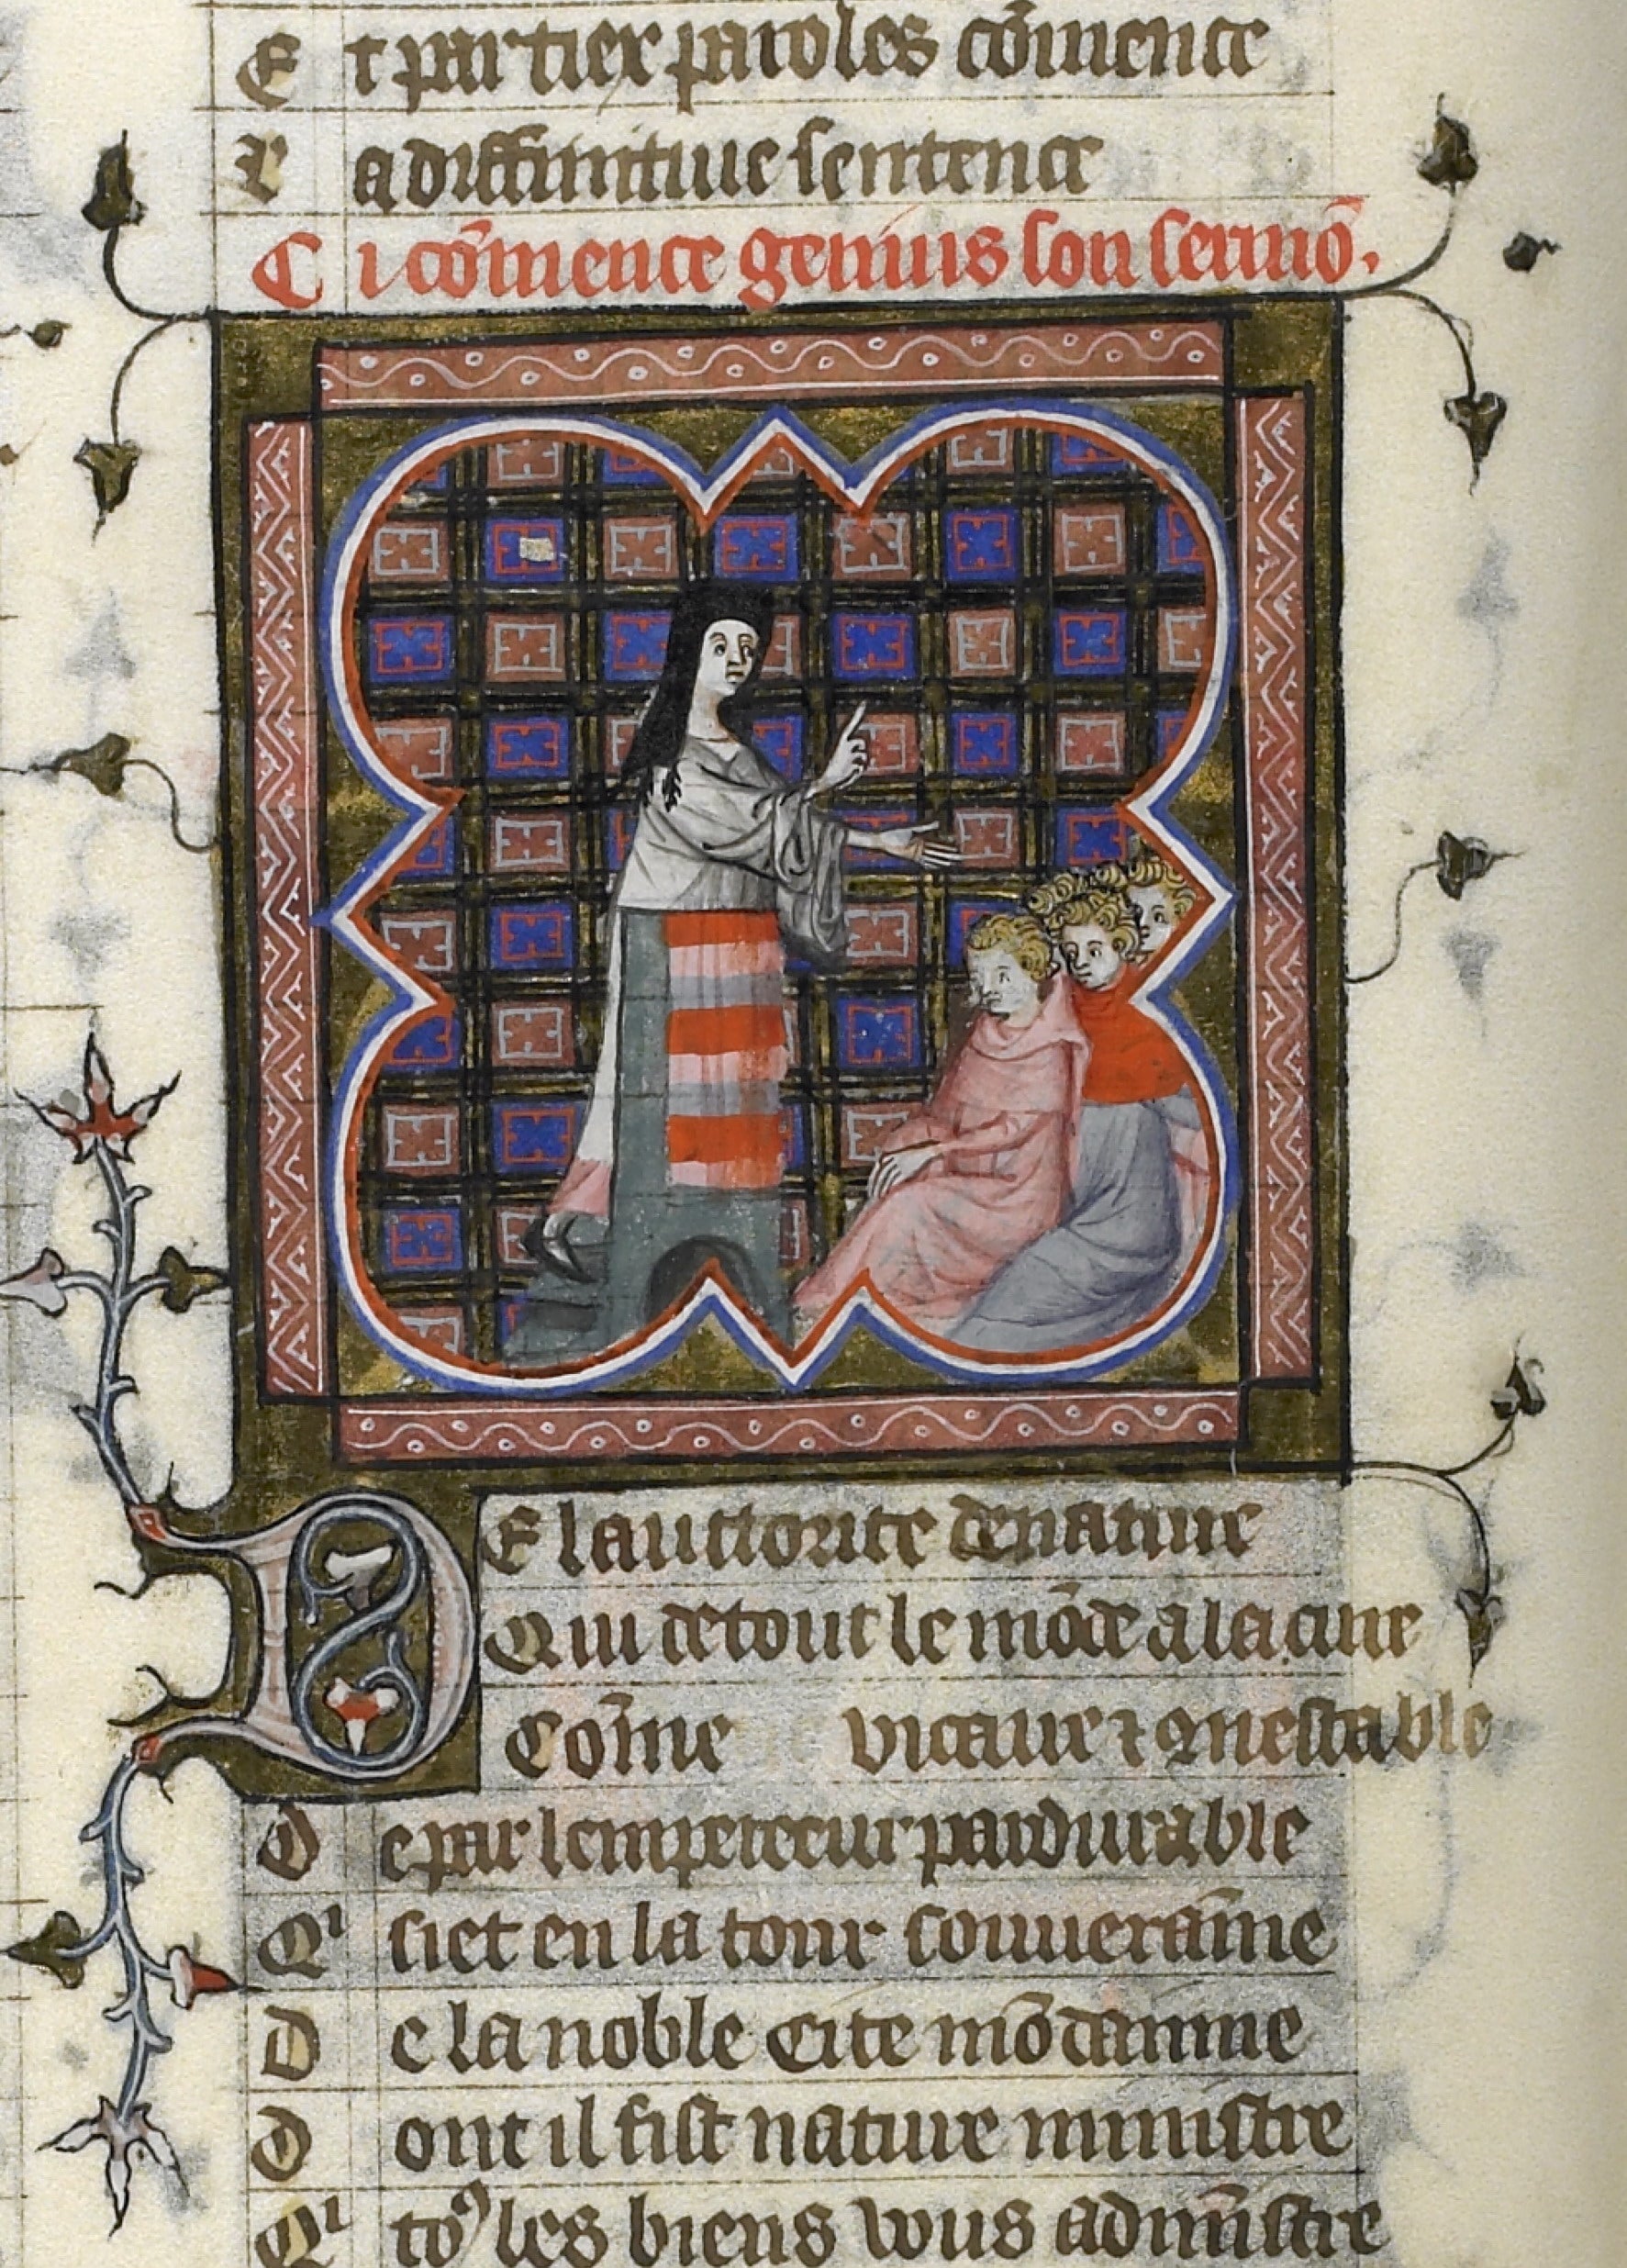 Et par tiex paroles cōmence
La diffinitiue sentence
Ci cōmence genius son sermō.
DE lauctorite de nature
Qui de tout le mōde a la cure
Cōme vicaire ⁊ ꝯnestable
De par lempereeur pardurable
Qi siet en la tour souuerainne
De la noble cite mōdainne
Dont il fist nature ministre
Qi toꝰ les biens vous admīstre